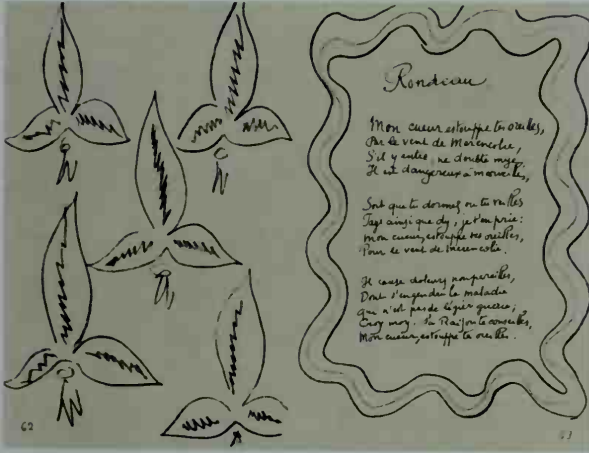 Rondeau
Mon cueur estouppe tes oreilles,
Par le vent de Merencolie,
S'il y entre, ne doubte mye,
Il est dangereux à merveilles,
Soit que tu dormes ou tu veilles
Fays ainsi que dy, je t'en prie:
Mon cueur, estouppe tes oreilles,
Pour le vent de Merencolie.
Il cause doleurs nompareilles,
Dont s'engendre la maladie
Qui n'est pas de légier guerie;
Croy moy. s'a Raison te conseilles,
Mon cueur, estouppe tes oreilles.
62
63